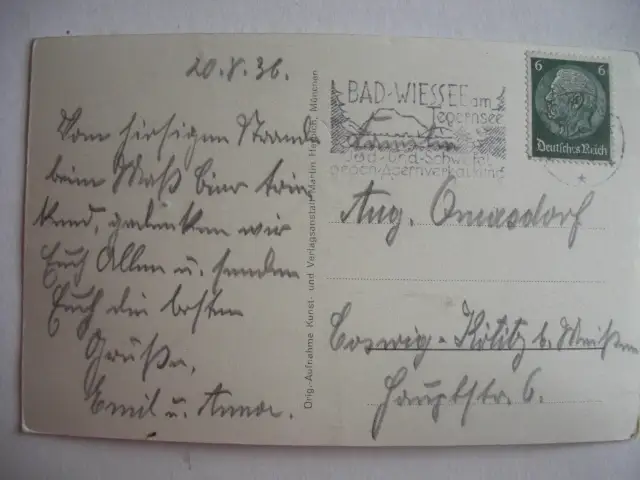 20.8.36.
Vom hiesigen Strand
beim Maß Bier trin
kend, gedenken wir
Euch Allen u. senden
Euch die besten
Grüße,
Emil u. Anna.
Orig.-Aufnahme Kunst- und Verlagsanstalt Martin Herpich, München
BAD-WIESSEE am
Tegernsee
Jod- und Schwefel
gegen Adernverkalkung
6 6
Deutsches Reich
Aug. Omasdorf
Coswig-Kötitz b. Meißen
Hauptstr. 6.